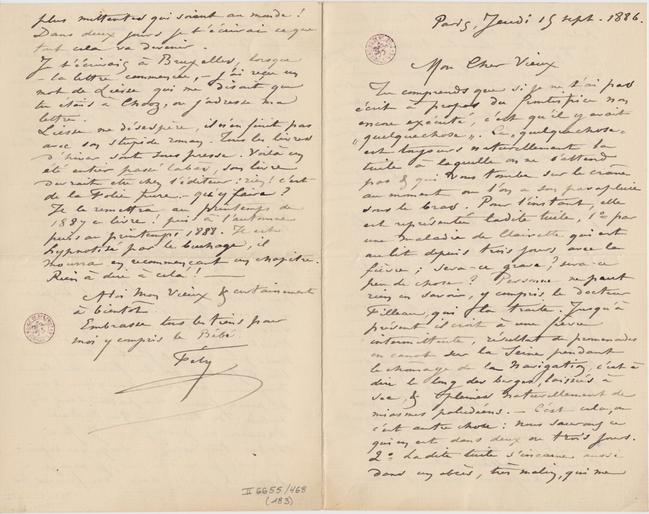 Paris, Jeudi 15 sept. 1886.
Mon Cher Vieux
Tu comprends que si je ne t'ai pas
écrit à propos du frontispice non
encore exécuté, c'est qu'il y avait
"quelquechose". Ce "quelquechose"
est toujours naturellement la
tuile à laquelle on ne s'attend
pas & qui vous tombe sur le crâne
au moment où l'on a son parapluie
sous le bras. Pour l'instant, elle
est représentée ladite tuile, 1o par
une maladie de Clairette qui est
au lit depuis trois jours avec la
fièvre; sera-ce grave? sera-ce
peu de chose? Personne ne peut
rien en savoir, y compris le docteur
Filleau, qui la traite. Jusqu'à
présent il croit à une fièvre
intermittente, résultat de promenades
en canot sur la Seine pendant
le chômage de la Navigation, c'est à
dire le long des berges, laissées à
sec, & pleines naturellement de
miasmes paludéens. — C'est cela, ou
c'est autre chose: nous saurons ce
qui en est dans deux ou trois jours.
2o Ladite tuile s'incarne aussi
dans un abcès, très malin, qui me
plus embêtantes qui soient au monde!
Dans deux jours je t'écrirai ce que
tout cela va devenir.
Je t'écrivais à Bruxelles, lorsque
— la lettre commencée, — j'ai reçu un
mot de Liesse qui me disait que
tu étais à Chooz, où j'adresse ma
lettre.
Liesse me désespère, il n'en finit pas
avec son stupide roman. Tous les livres
d'hiver sont sous presse. Voilà un
été entier passé labas, son livre
devrait être chez l'éditeur: rien! c'est
de la Folie pure. — qu'y faire?
Je le remettra au printemps de
1887 ce livre! puis à l'automne
puis au printemps 1888. Il est
hypnotisé par le bûchage, il
mourra en recommençant un chapitre.
Rien à dire à cela! —
A toi mon vieux & certainement
à bientôt
Embrasse tous les tiens pour
moi y compris le Bébé.
Fély
II 6655/468
(183)